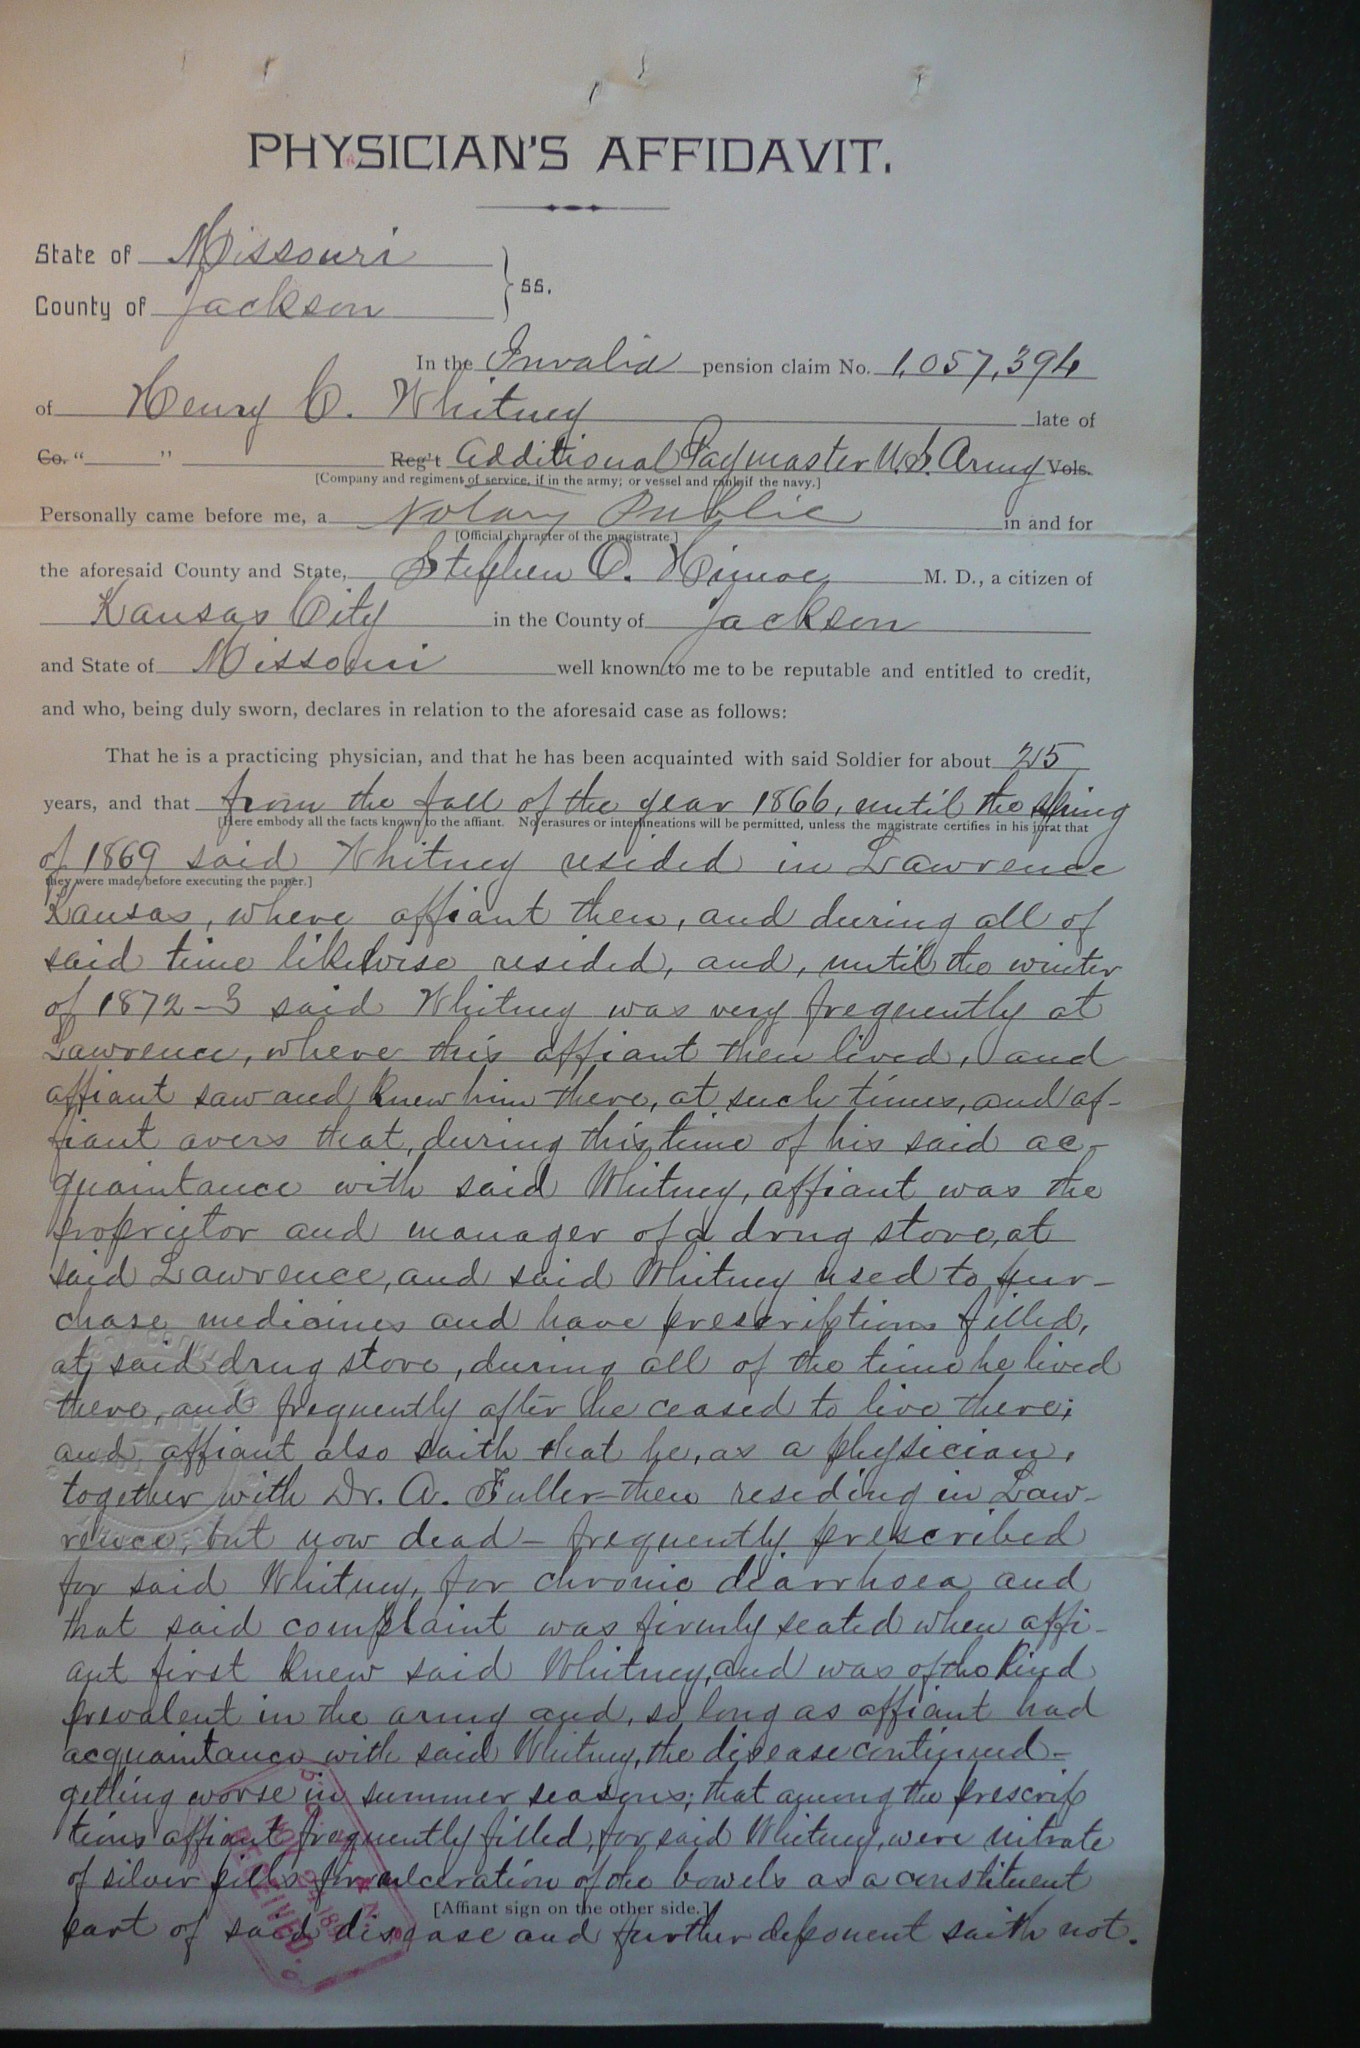 PHYSICIAN'S AFFIDAVIT.
State of Missouri
County of Jackson } ss.
In the Invalid pension claim No. 1,057,394
of Henry C. Whitney late of
Co. " " Reg't Additional Paymaster U.S. Army Vols.
[Company and regiment of service, if in the army; or vessel and rank, if the navy.]
Personally came before me, a Notary Public in and for
[Official character of the magistrate.]
the aforesaid County and State, Stephen O. Himoe M. D., a citizen of
Kansas City in the County of Jackson
and State of Missouri well known to me to be reputable and entitled to credit,
and who, being duly sworn, declares in relation to the aforesaid case as follows:
That he is a practicing physician, and that he has been acquainted with said Soldier for about 25
years, and that from the fall of the year 1866, until the spring
[Here embody all the facts known to the affiant. No erasures or interlineations will be permitted, unless the magistrate certifies in his jurat that
of 1869 said Whitney resided in Lawrence
they were made before executing the paper.]
Kansas, where affiant then, and during all of
said time likewise resided, and, until the winter
of 1872-3 said Whitney was very frequently at
Lawrence, where this affiant then lived, and
affiant saw and knew him there, at such times, and af-
fiant avers that, during this time of his said ac-
quaintance with said Whitney, affiant was the
proprietor and manager of a drug store, at
said Lawrence, and said Whitney used to pur-
chase medicines and have prescriptions filled,
at said drug store, during all of the time he lived
there, and frequently after he ceased to live there;
and affiant also saith that he, as a physician,
together with Dr. A. Fuller - then residing in Law-
rence, but now dead - frequently prescribed
for said Whitney, for chronic diarrhoea and
that said complaint was firmly seated when affi-
ant first knew said Whitney, and was of the kind
prevalent in the army and, so long as affiant had
acquaintance with said Whitney, the disease continued -
getting worse in summer seasons; that among the prescrip
tions affiant frequently filled, for said Whitney, were nitrate
of silver pills for ulceration of the bowels as a constituent
[Affiant sign on the other side.]
part of said disease and further deponent saith not.
RECEIVED